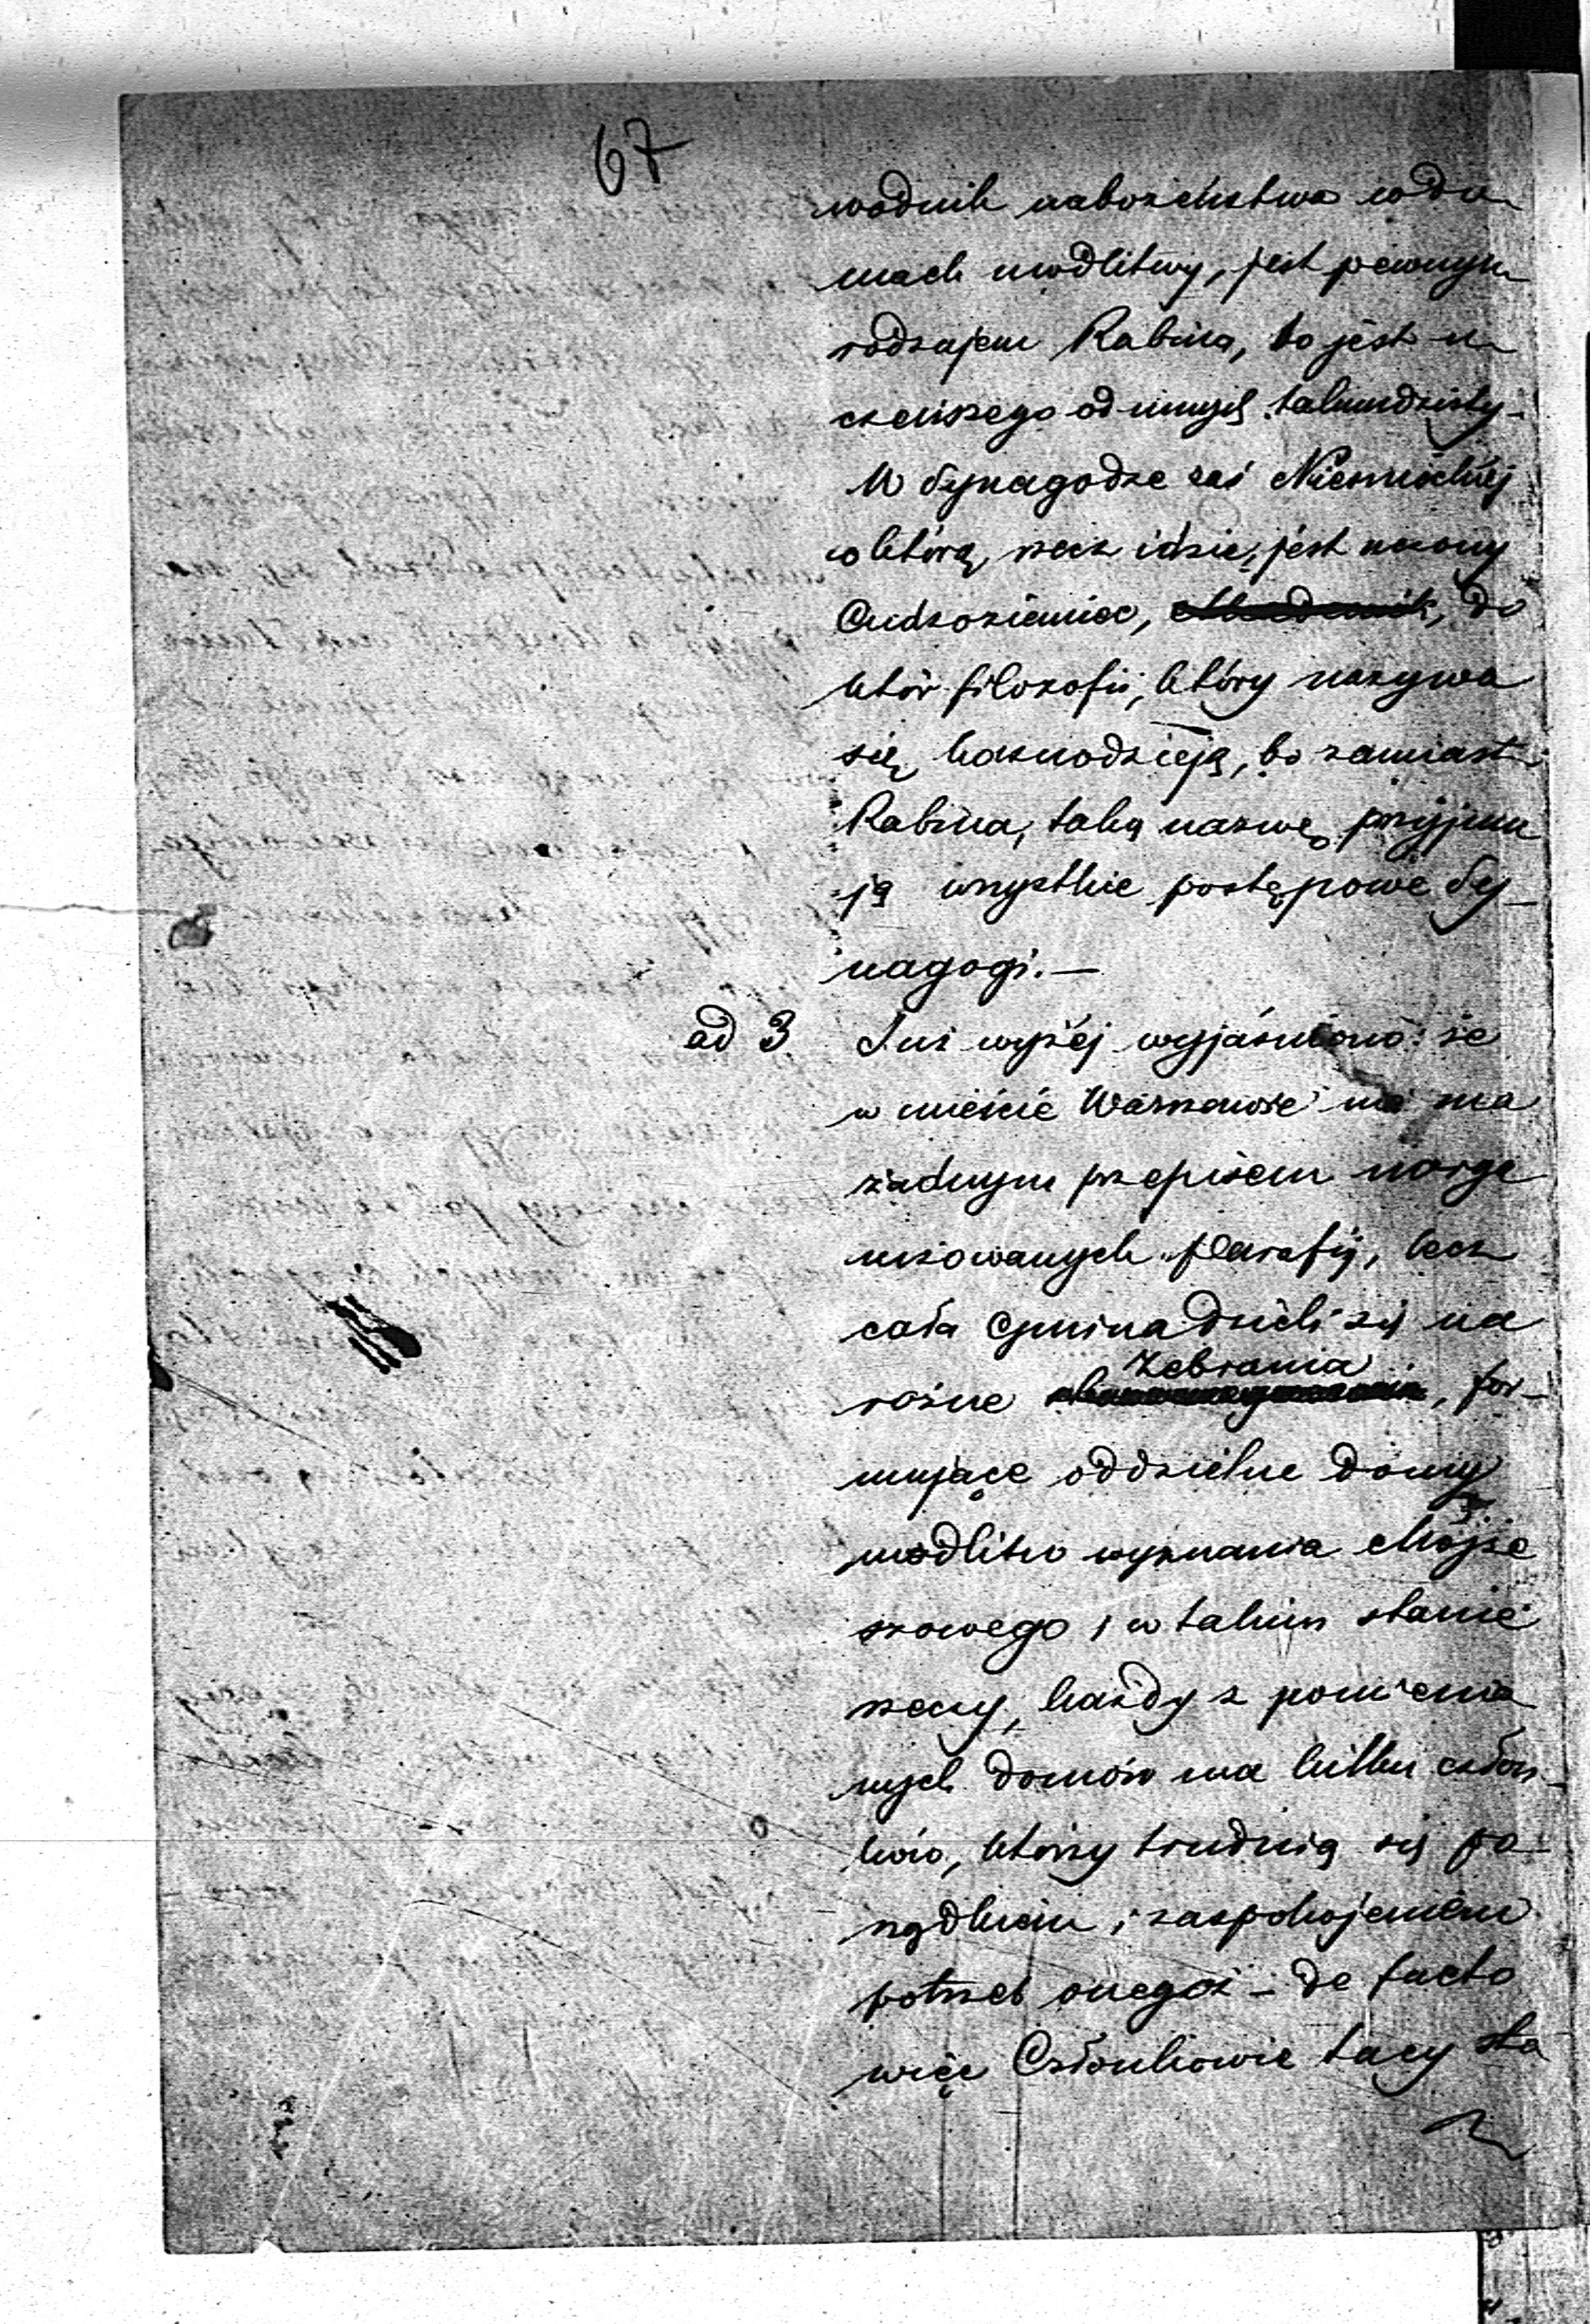 67
wodnik nabożeństwa w do
mach modlitwy, jest pewnym
rodzajem Rabina, to jest u
czeńszego od innych talmudzisty.
W Synagodze zaś Niemieckiéj
o którą rzecz idzie, jest uczony
Cudzoziemiec, do
któr filozofii, który nazywa
się kaznodzieją, bo zamiast
Rabina, taką nazwę przyjmu
ją wszystkie postępowe Sy_
nagogi.—
ad 3 Już wyżéj wyjaśniono: że
w mieście Warszawie nie ma
żadnym przepisem uorga
nizowanych parafij, lecz
cała Gmina dzieli się na
Zebrania
rożne , for_
mujące oddzielne domy
modlitw wyznania Mojże
szowego, w takim stanie
rzeczy, każdy z pomienio
nych domów ma kilku człon_
ków, którzy trudnią się po_
rządkiem i zaspokojeniem
potrzeb onegoż – de facto
więc Członkowie tacy sta